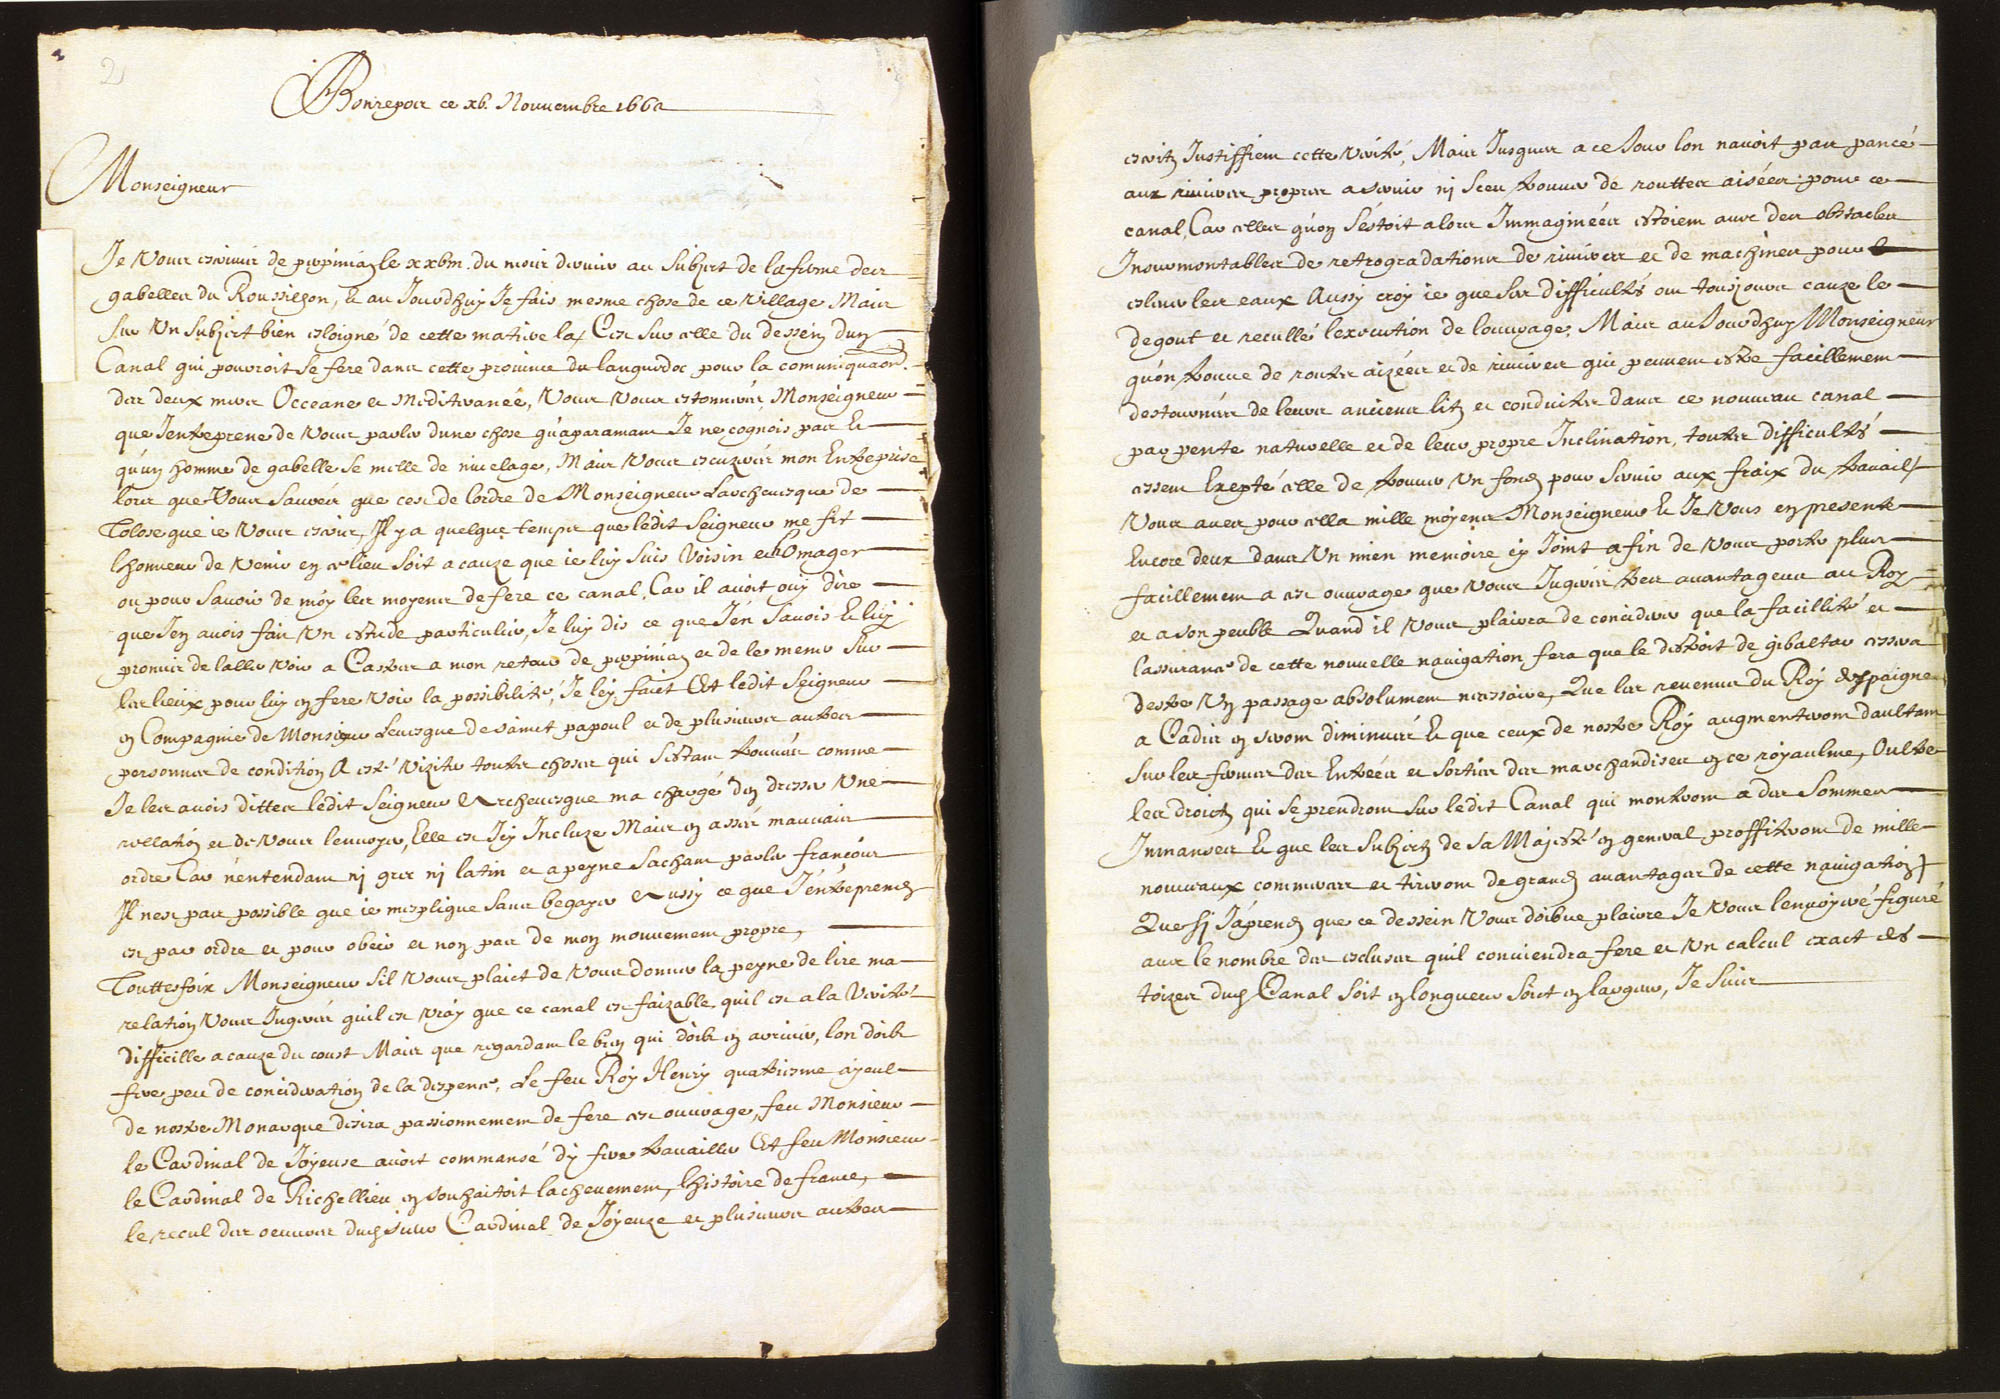 2
Bonrepos ce xb. Nouuembre 1662
Monseigneur
Je vous escriuis de perpinian le xxbiii. du mois dernier au subject de la ferme des
gabelles du Roussilhon, Et au Jourdhuy Je fais mesme chose de ce village Mais
sur Un subject bien esloigné de cette matiere la, C'est sur celle du dessein dun
Canal qui pourroit se fere dans cette prouince du languedoc pour la comuniquaon.
des deux mers Occeane et Mediteranée, Vous vous estonnerez Monseigneur
que J'entreprene de vous parler dune chose qu'aparamant Je ne cognois pas Et
qu'un homme de gabelle se melle de niuelage, Mais vous escuzerez mon Entreprise
lors que Vous sauréz que cest de lordre de Monseigneur L'archeuesque de
Tolose que ie vous escris, Il y a quelque temps que ledit seigneur me fit
lhonneur de venir en ce lieu soit a cauze que ie luy suis Voisin et homager
ou pour sauoir de moy les moyens de fere ce canal, Car il auoit ouy dire
que J'en auois fait Un estude particulier, Je luy dis ce que J'en sauois Et luy
promis de laller voir a Castres a mon retour de perpinian et de le mener sur
les lieux pour luy en fere voir la possibilité, Je l'ey faict Et ledit seigneur
en Compagnie de Monsieur Leuesque de sainct papoul et de plusieurs autres
personnes de condition A esté vizitter toutes choses qui s'estant trouuées comme
Je les auois dittes ledit seigneur Archeuesque ma chargé d'en dresser vne
rellation et de vous l'enuoyer, Elle est Icy Incluze Mais en assez mauuais
ordre Car n'entendant ny grec ny latin et a peyne sachant parler francois
Il n'est pas possible que ie m'esplique sans begayer Aussy ce que J'entreprends
est par ordre et pour obeir et non pas de mon mouuement propre,
Touttesfoix Monseigneur s'il vous plaict de vous donner la peyne de lire ma
relation vous Jugerez qu'il est vray que ce canal est faizable, quil est a la Verité
difficille a cauze du coust Mais que regardant le bien qui doibt en arriuer, lon doibt
fere peu de concideration de la despence, Le feu Roy Henry quatriesme ayeul
de nostre Monarque desira passionnement de fere cest ouurage, feu Monsieur
le Cardinal de Joyeuse auoit commansé d'y fere trauailler Et feu Monsieur
le Cardinal de Richellieu en souhaitoit l'acheuement, l'histoire de france,
le recul des oeuures dudit sieur Cardinal de Joyeuze et plusieurs autres
escritz Justiffient cette verité, Mais Jusques a ce Jour lon n'auoit pas pancé
aux riuieres propres a seruir ny sceu trouuer de routtes aisées pour ce
canal, Car celles qu'on s'estoit alors Immaginées estoient auec des obstacles
Insurmontables de retrogradations de riuieres et de machines pour
esleuer les eaux Aussy croy ie que ses difficultés ont tousjours cauzé le
degout et recullé l'execution de l'ouurage, Mais au Jourdhuy Monseigneur
qu'on trouue de routes aizées et de riuieres qui peuuent estre facillement
destournées de leurs anciens litz et conduites dans ce nouueau canal
par pente naturelle et de leur propre Inclination, toutes difficultés
cessent Exepté celle de trouuer un fonds pour seruir aux fraix du trauail,
Vous aues pour cella mille moyens Monseigneur Et Je vous en presente
Encore deux dans Un mien memoire cy Joint afin de vous porter plus
facillement a cest ouurage que vous Jugerez tres auantageux au Roy
et a son peuble Quand il vous plairra de conciderer que la facillité et
lassurance de cette nouuelle nauigation fera que le destroit de gibaltar cessera
destre Un passage absolument necessaire, Que les reuenus du Roy despaigne
a Cadis en seront diminués Et que ceux de nostre Roy augmenteront daultant
sur les fermes des Entrées et sorties des marchandises en ce royaulme, Oultre
les droictz qui se prendront sur ledit Canal qui monteront a des sommes
Inmanses Et que les subjectz de sa Majesté en general proffiteront de mille
nouueaux commerces et tireront de grands auantages de cette nauigation,
Que sy J'aprends que ce dessein vous doibue plaire Je vous l'enuoyeré figuré
auec le nombre des escluses quil conuiendra fere et Un calcul exact des
toizes dudit Canal soit en longueur soit en largeur, Je suis